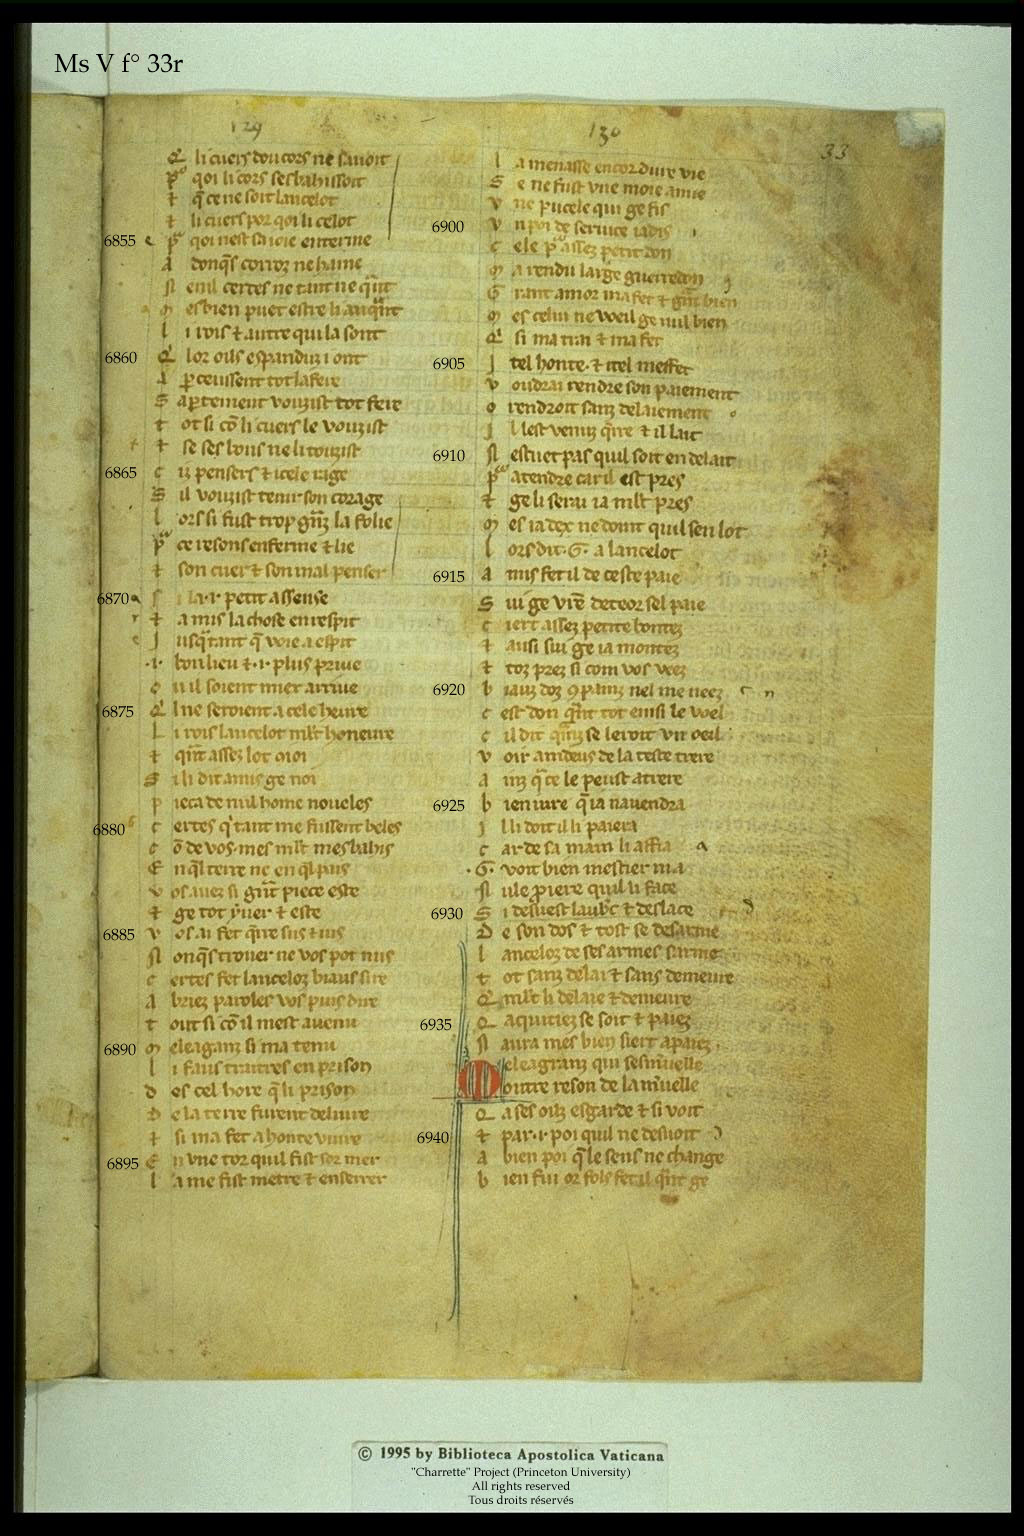 Ms V f° 33r
129
130
33
Q li cuers dou cors ne savoit
p qoi li cors sesbahissoit
⁊ q̃ ce ne soit lancelot
⁊ li cuers por qoi li celot
6855 p qoi nest sa ioie enterine
a donq̃s corroz ne haine
N enil certes ne tant ne q̃nt
m es bien puet estre
l i rois ⁊ autre qui la sont
6860 Q lor oilz espanduz i ont
a p̃ceussent tost lafeire
S apertement vouzist tot feire
t ot si cõ li cuers le vouzist
⁊ se ses bons ne li touzist
6865 c uz pensers ⁊ icele rage
S il vouzist tenir son corage
l ors si fust trop gñz la folie
p ce resons enferme ⁊ lie
⁊ son cuer ⁊ son mal penser
6870 la .i. petit assense
⁊ a mis la chose en respit
J usq̃ tant q̃ voie a espit
.i. bon lieu ⁊ .i. plus prive
o u il soient mier arrive
6875 Q l ne seroient a cele heure
L i rois lancelot ml̃t honeure
⁊ q̃nt assez lot oioi
S i li dit amis ge noi
p ieca de nul home noveles
6880 c ertes q̃ tant me fussent beles
c õ de vos mes ml̃t mesbahis
E n q̃l terre ne en q̃l pais
v os avez si gñt piece este
⁊ ge tot yver ⁊ este
6885 v os ai fet q̃rre sus ⁊ ius
N onq̃s trover ne vos pot nus
c ertes fet lanceloz biaus sire
a briez paroles vos puis dire
t out si cõ il mest avenu
6890 m eleaganz si ma tenu
l i faus traitres en prison
d es cel hore q̃ li prison
D e la terre furent delivre
⁊ si ma fet a honte vivre
6895 E n une tor quil fist sor mer
l a me fist metre ⁊ enserrer
l a menasse encor dure vie
S e ne fust une moie amie
v ne pucele qui ge fis
6900 v n poi de service iadis
c ele p assez petit don
m a rendu large guerredon
G rant amor ma fet ⁊ gñt bien
m es celui ne weil ge nul bien
Q si ma trai ⁊ ma fet
6905 J tel honte ⁊ itel meffet
v oudrai rendre son paiement
o rendroit sanz delaiement
J l lest venuz q̃rre ⁊ il lait
6910 N estuet pas quil soit en delait
p atendre car il est prez
⁊ ge li serai ia ml̃t pres
m es ia dex ne doint quil sen lot
l ors dit .G. a lancelot
6915 a mis fet il de ceste paie
S ui ge
c iert assez petite bontez
⁊ ausi sui ge ia montez
⁊ toz prez si com vos veez
6920 b iauz doz 9panz nel me neez
c est don q̃nt tot ensi le voel
c il dit q̃nz se leroit un oeil
v oir amdeus de la teste trere
a inz q̃ ce le peust atrere
6925 b ien iure q̃ ia navendra
J l li doit il li paiera
c ar de sa main li affia
.G. voit bien mestier ni a
N ule priere quil li face
6930 S i desvest
D e son dos ⁊ tost se desarme
l anceloz de ses armes sarme
t ot sanz delai ⁊ sanz demeure
Q ml̃t li delaie ⁊ demeure
6935 Q aquitiez se soit ⁊ paiez
N aura mes bien siert apaiez
M eleagranz qui sesmuelle
outre reson de la mueelle
Q a ses oilz esgarde ⁊ si voit
6940 ⁊ par .i. poi quil ne desvoit
a bien poi q̃ le sens ne change
b ien fui or fols fet il q̃nt ge
© 1995 by Biblioteca Apostolica Vaticana
"Charrette" Project (Princeton University)
All rights reserved
Tous droits réservés